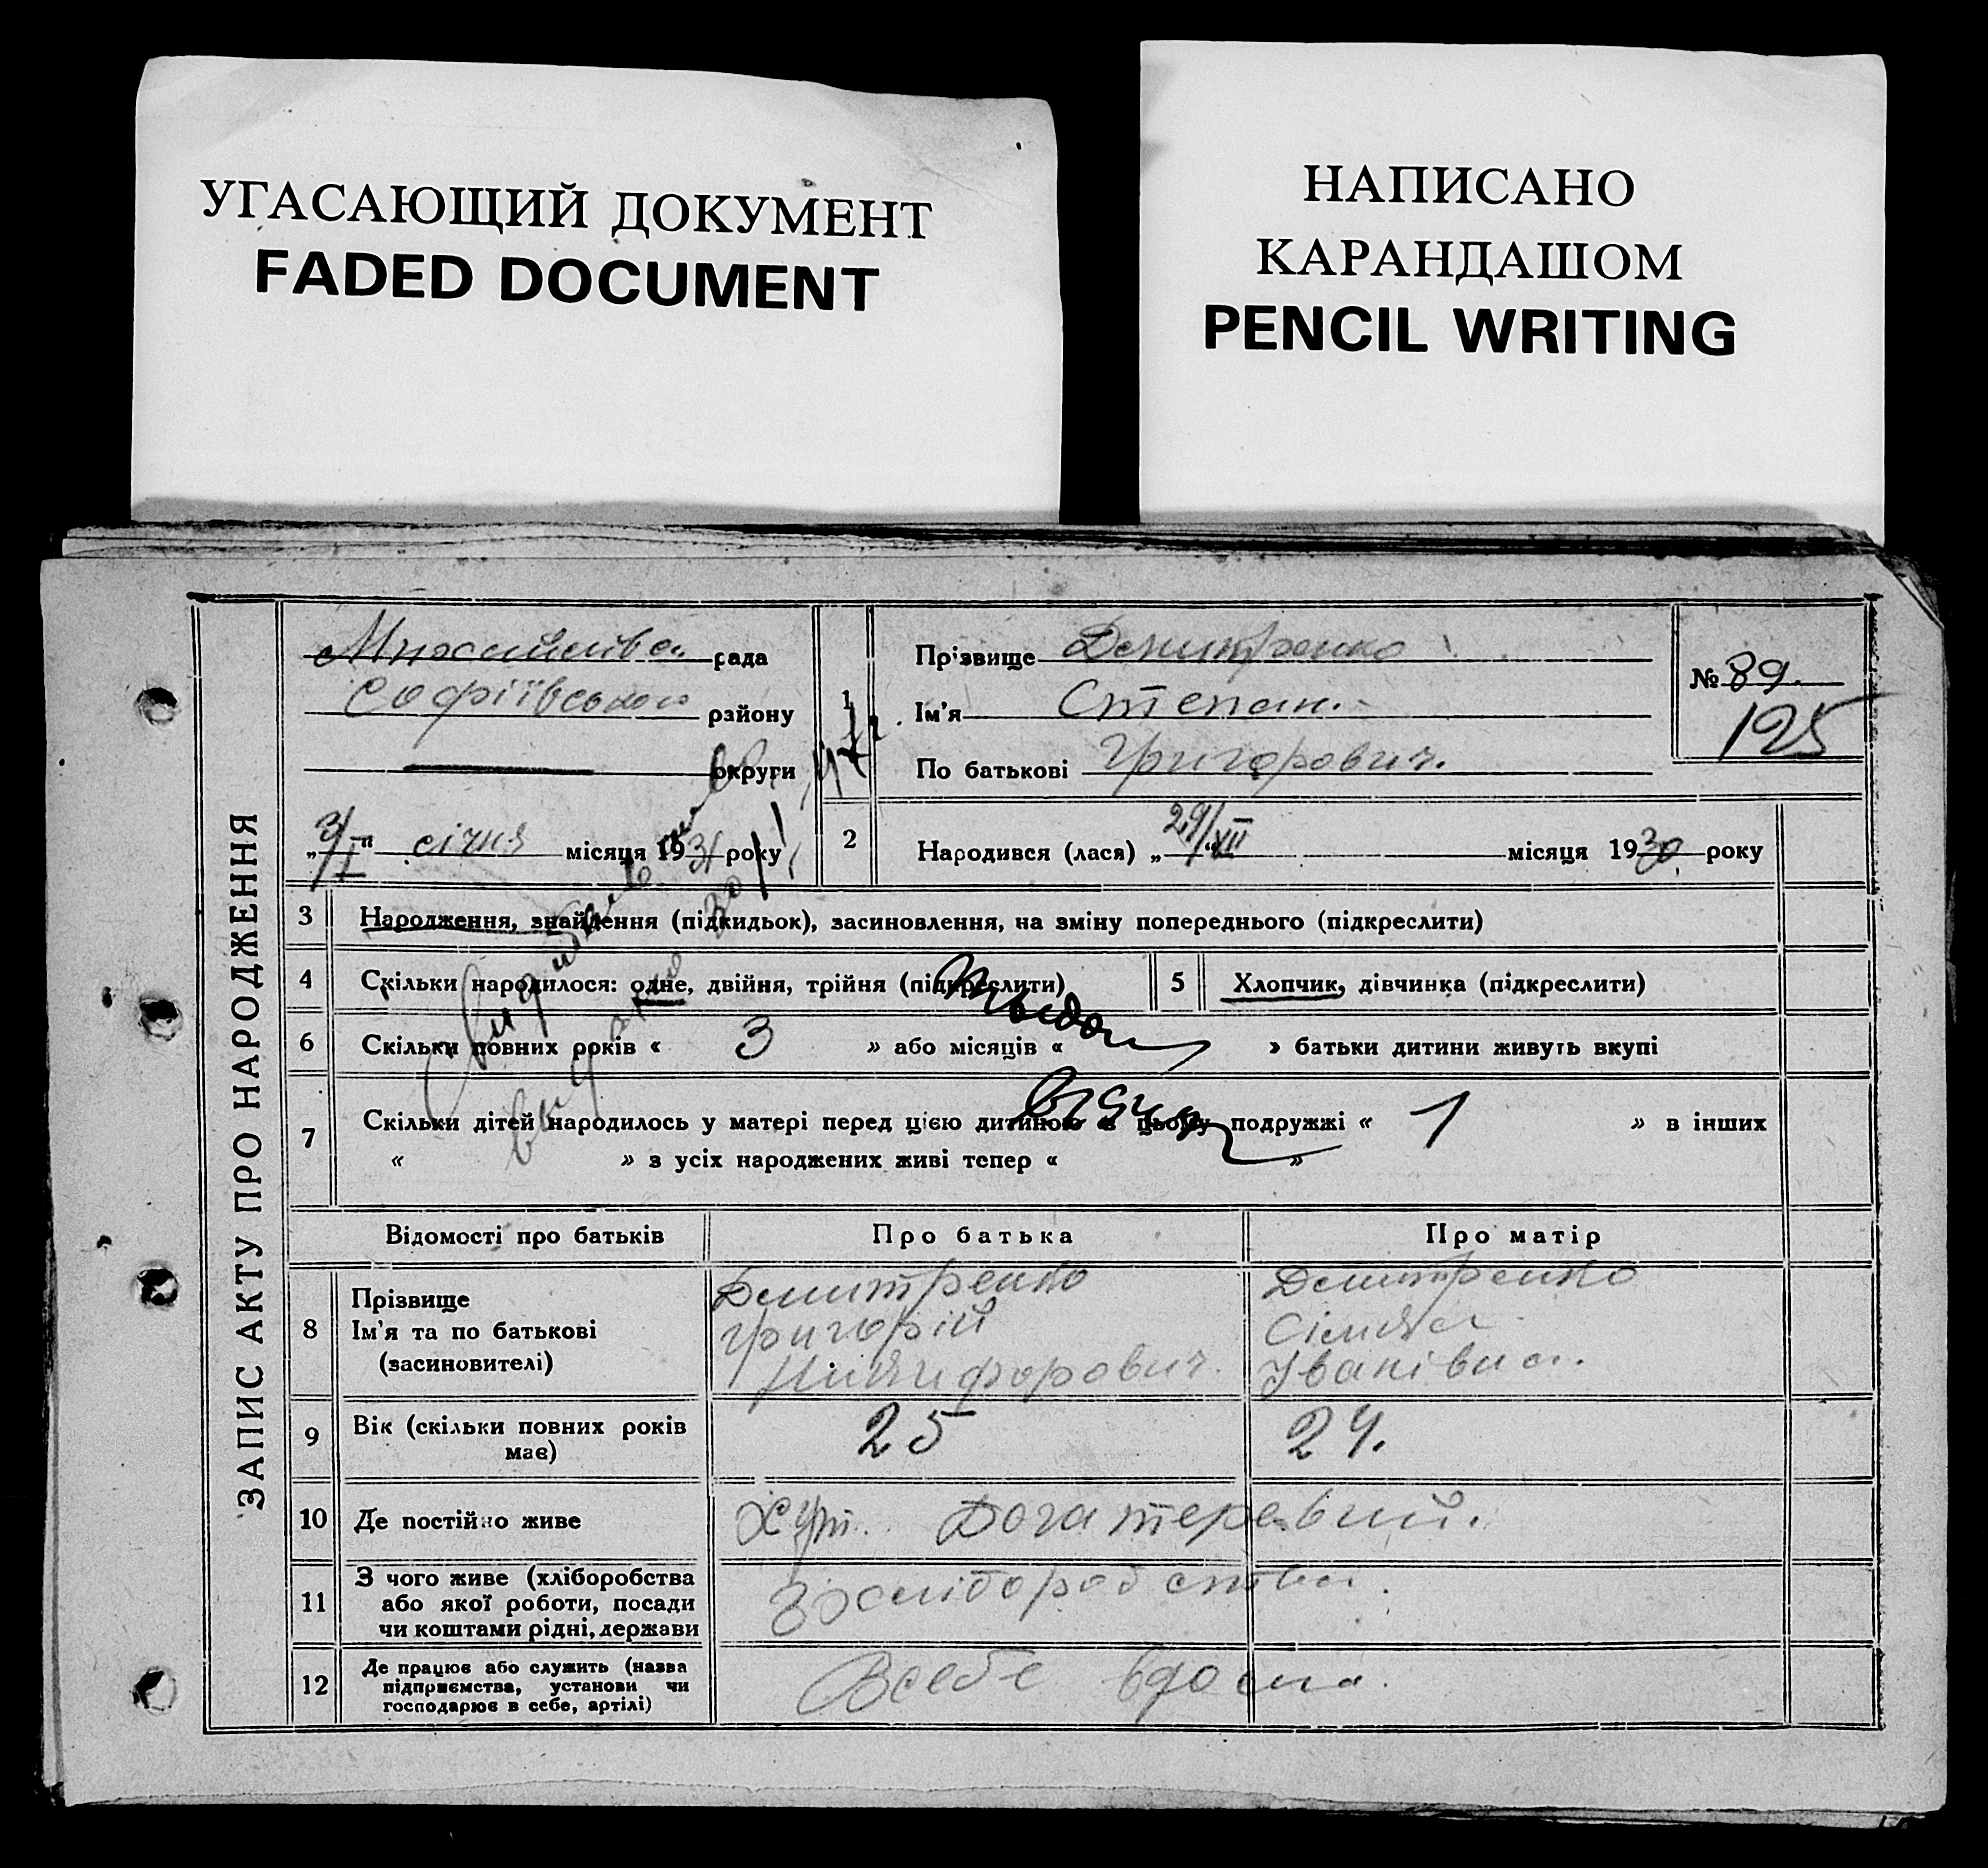 УГАСАЮЩИЙ ДОКУМЕНТ
FADED DOCUMENT
НАПИСАНО
КАРАНДАШОМ
PENCIL WRITING
ЗАПИС АКТУ ПРО НАРОДЖЕННЯ
рада
Софіївського району
округи
„3/I" січня місяця 1931 року
1
Прізвище Демитренко
Ім'я Степан.
По батькові Григорович.
№ 89.
125
2 Народився (лася) „29/XII" місяця 1930 року
3 Народження, знайдення (підкидьок), засиновлення, на зміну попереднього (підкреслити)
4 Скільки народилося: одне, двійня, трійня (підкреслити)
5 Хлопчик, дівчинка (підкреслити)
6 Скільки повних років « 3 » або місяців « » батьки дитини живуть вкупі
7 Скільки дітей народилось у матері перед цією дитиною в цьому подружжі « 1 » в інших
« » з усіх народжених живі тепер « »
Відомості про батьків Про батька Про матір
8 Прізвище Демитренко Демитренко
Ім'я та по батькові Григорій
(засиновителі) Іванівна.
9 Вік (скільки повних років має) 25 24.
10 Де постійно живе Хут.
11 З чого живе (хліборобства
або якої роботи, посади
чи коштами рідні, держави
З хліборобства.
12 Де працює або служить (назва
підприємства, установи чи
господарює в себе, артілі)
Всебе вдома.